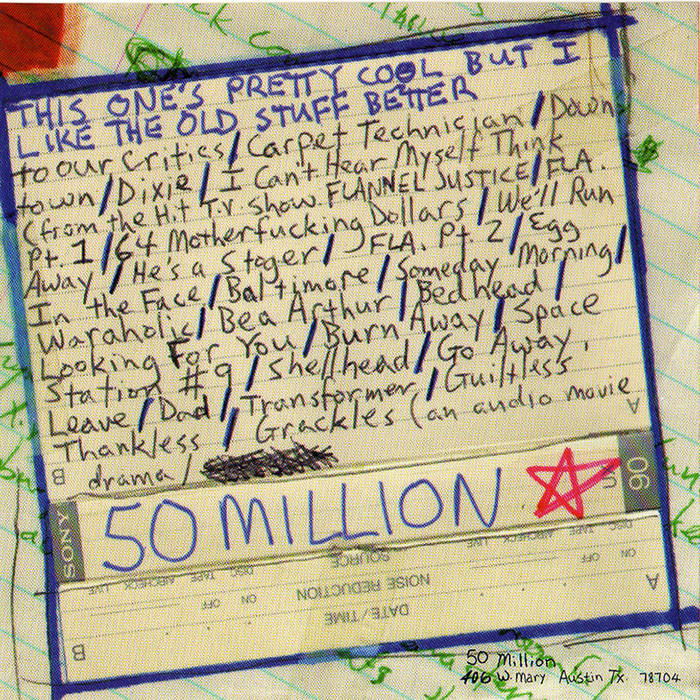 THIS ONE'S PRETTY COOL BUT I
LIKE THE OLD STUFF BETTER
to our Critics / Carpet Technician / Down
town / Dixie / I Can't Hear Myself Think
(from the Hit T.V. show FLANNEL JUSTICE / FLA.
Pt. 1 / 64 Motherfucking Dollars / We'll Run
Away / He's a Stoger / FLA. Pt. 2 / Egg
In the Face / Baltimore / Someday Morning /
Waraholic / Bea Arthur / Bedhead /
Looking For You / Burn Away / Space
Station #9 / Shellhead / Go Away,
Leave / Dad / Transformer / Guiltless
Thankless / Grackles (an audio movie
drama /
B
A
SONY
50 MILLION
90
DISC TAPE AIRCHECK LIVE
DISC TAPE AIRCHECK LIVE
SOURCE
ON OFF
NOISE REDUCTION
ON OFF
DATE/TIME
A
B
50 Million
406 W. Mary Austin Tx. 78704